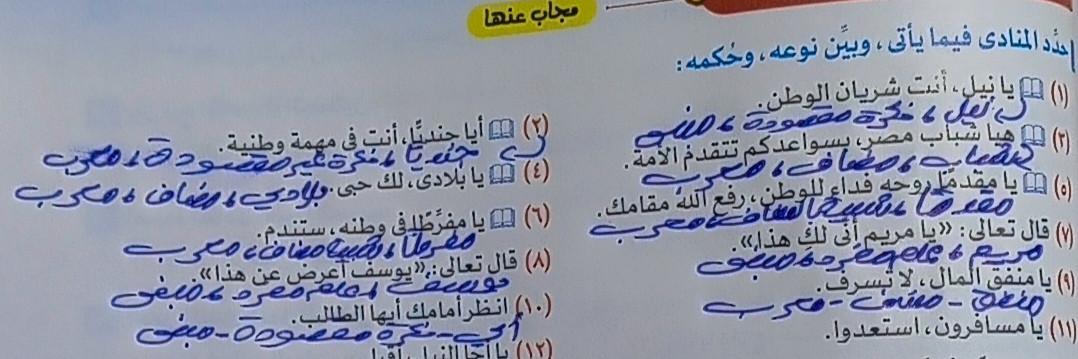 مجاب عنها
حدِّد المنادى فيما يأتى، وبيِّن نوعه، وحُكمه:
(١) يا نيل، أنت شريان الوطن.
نيل، نكرة مقصودة، مبنى
(٢) أيا جنديًّا، أنت فى مهمة وطنية.
جنديًا، نكرة غير مقصودة، معرب
(٣) هيا شباب مصر، بسواعدكم تتقدم الأمة.
شباب، مضاف، معرب
(٤) يا بلادى، لك حبى.
بلادي، مضاف، معرب
(٥) يا مقدمًا روحه فداء للوطن، رفع الله مقامك.
مقدمًا، شبيهًا لمضاف، معرب
(٦) يا مفرِّطًا فى وطنه، ستندم.
مفرطًا، شبيه مضاف، معرب
(٧) قال تعالى: «يا مريم أنى لكِ هذا».
مريم، علم مفرد، مبنى
(٨) قال تعالى: «يوسف أعرض عن هذا».
يوسف، علم مفرد، مبنى
(٩) يا منفق المال، لا تسرف.
منفق - مضاف - معرب
(١٠) انظر أمامك أيها الطالب.
أى - نكرة مقصودة - مبنى
(١١) يا مسافرون، استعدوا.
(١٢) يا أخا النيل،